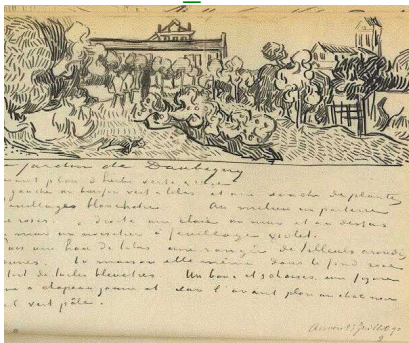 jardin de Daubigny
avant plan d'herbe verte et rose
gauche un buisson vert et lilas et une souche de plantes
feuillages blanchâtres Au milieu un parterre
de roses. à droite une claie un mur et au dessus
mur un noisetier à feuillage violet.
puis une haie de lilas une rangée de tilleuls arrondis
jaunes. La maison elle même dans le fond rose
toit de tuiles bleuâtres Un banc et 3 chaises une figure
à chapeau jaune et sur l'avant plan un chat noir
ciel vert pâle.